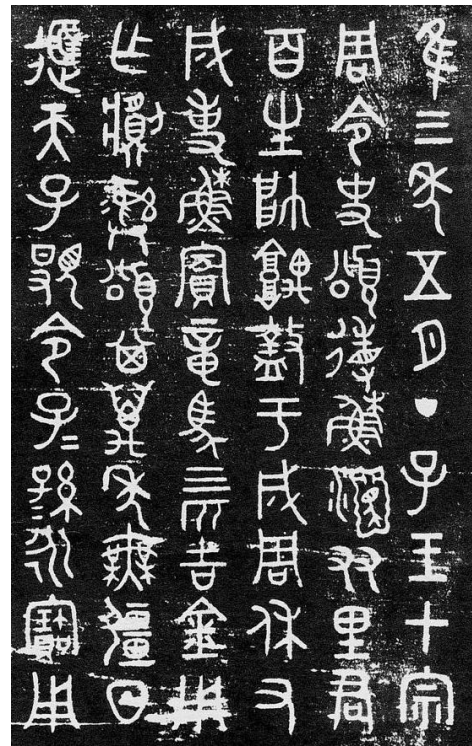 隹三年五月丁子王才宗
周令史頌省蘇友里君
百生帥盩于成周休又
成事蘇賓章馬四匹吉金用
乍彝頌其萬年無疆日
天子令子=孫=永寶用